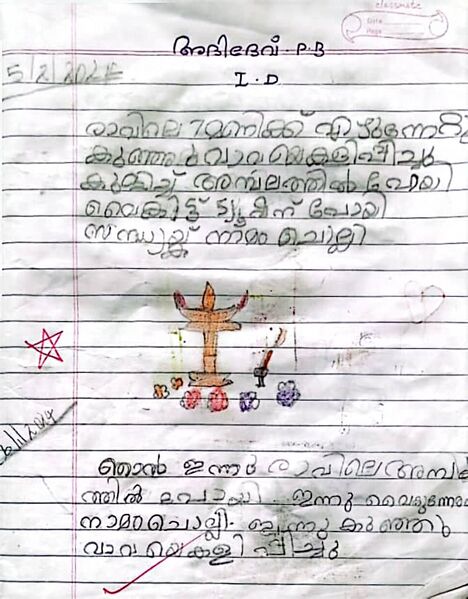 classmate
Date
Page
അദിദേവ്. P. B
I. D
5/2/2024
രാവിലെ 7മണിക്ക് എഴുന്നേറ്റു
കുഞ്ഞുവാവയെകളിപ്പിച്ചു
കുളിച്ച് അമ്പലത്തിൽപോയി
വൈകിട്ട് ട്യൂഷന് പോയി
സന്ധ്യയ്ക്ക് നാമം ചൊല്ലി
ഞാൻ ഇന്നു രാവിലെഅമ്പല
ത്തിൽ പോയി. ഇന്നു വൈ
നാമംചൊല്ലി. ഇന്നു കുഞ്ഞു
വാവയെകളിപ്പിച്ചു